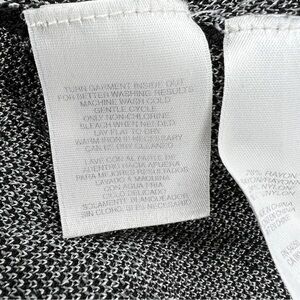 TURN GARMENT INSIDE OUT
FOR BETTER WASHING RESULTS
MACHINE WASH COLD
GENTLE CYCLE
ONLY NON-CHLORINE
BLEACH WHEN NEEDED
LAY FLAT TO DRY
WARM IRON IF NECESSARY
CAN BE DRY CLEANED
LAVE CON AL PARTE DE
ADENTRO HACIA AFUERA
PARA MEJORES RESULTADOS
LAVADO A MAQUINA
CON AGUA FRIA
CICLO DELICADO
SOLAMENTE BLANQUEADOR
SIN CLORO, SI ES NECESARIO
RAYON
NYLON